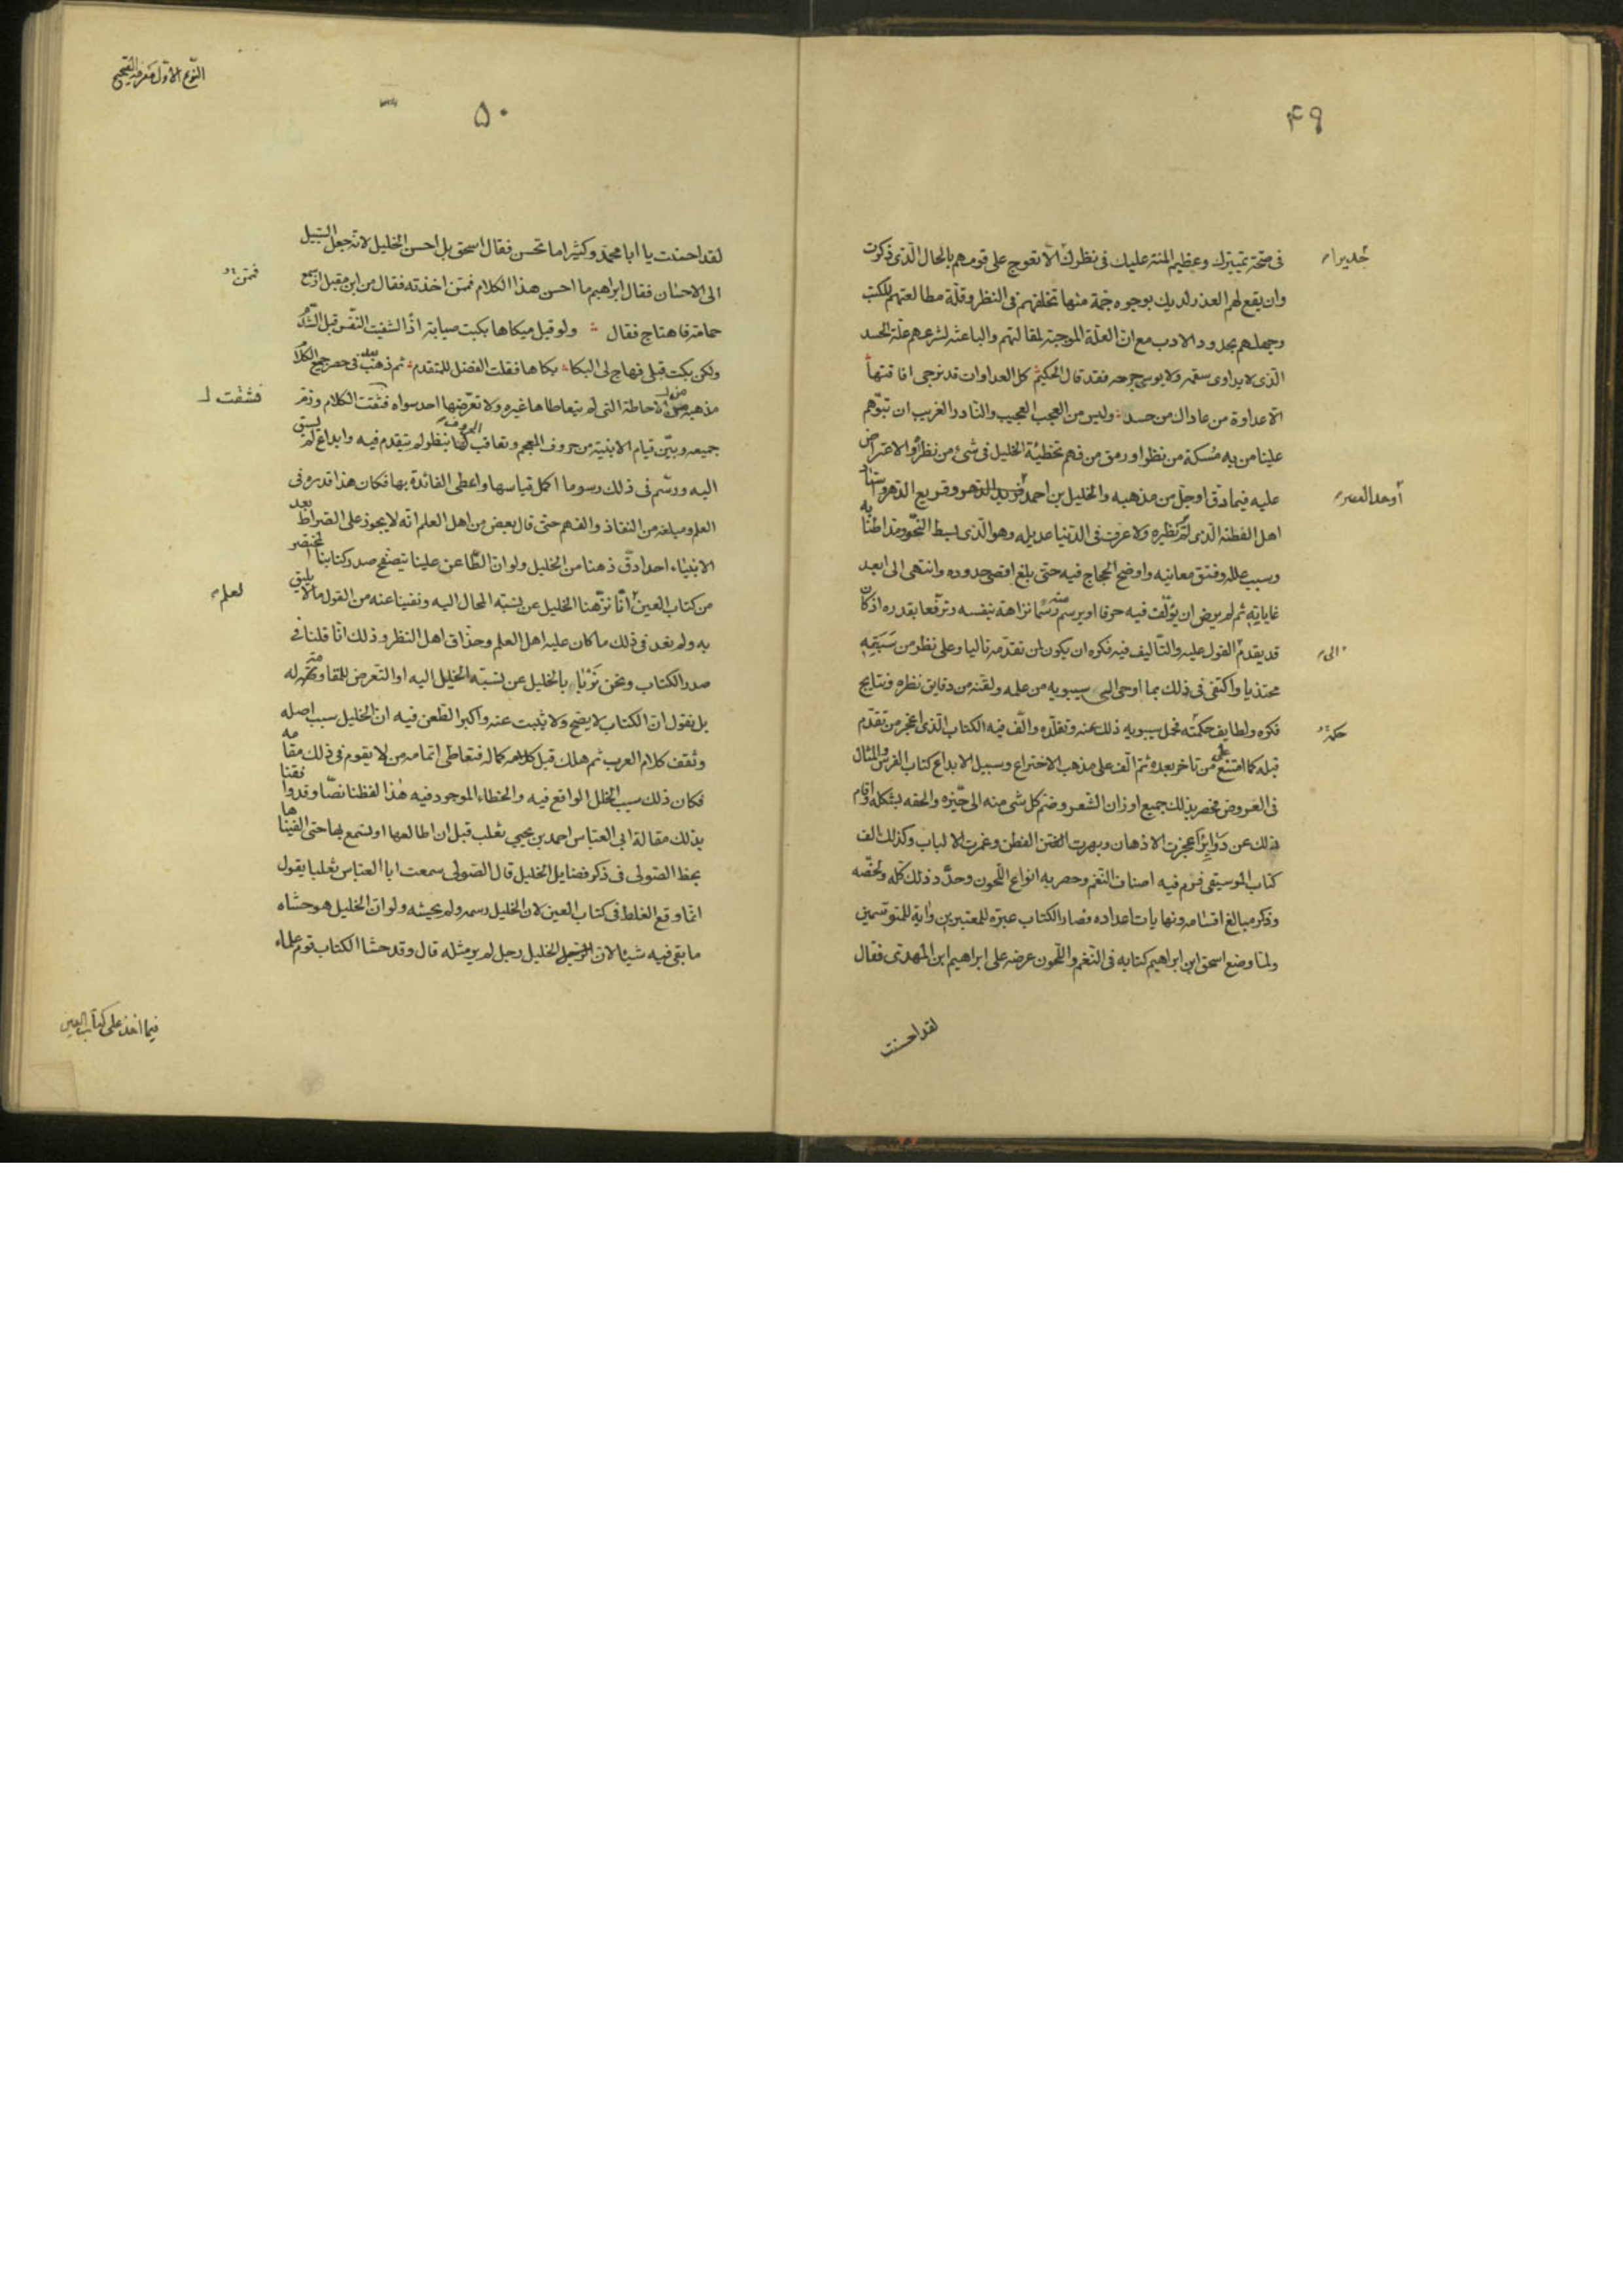 ۴۹
فى صحّة تمييزك وعظيم المنّة عليك فى نظرك الّا تعوج على قوم هم بالحال الّذى ذكرت
جديرا
وان يقع لهم العذر لديك بوجوه جمّة منها تخلفهم فى النظر وقلّة مطالعتهم للكتب
وجهلهم بحدود الادب مع انّ العلّة الموجبة لمقالتهم والباعثة لتسرعهم علّة الحسد
الّذى لا يداوى سقمه ولا يوسى جرحه فقد قال الحكيم كل العداوات قد ترجى افاقتها
الّا عداوة من عاداك من حسد وليس من العجب العجيب والنّادر الغريب ان تبوّهم
علينا من به مُسكة من نظر او رمق من فهم تخطئة الخليل فى شىء من نظره والاعتراض
عليه فيما دقّ او جلّ من مذهبه والخليل بن احمد فريد الدّهر وقريع الدّهر وستاد
أوحد العصر
اهل الفطنة الّذى لم يُر نظيره ولا عرف فى الدّنيا عديله وهو الّذى بسط النّحو ومدّ اطنابه
وسبب علله وفتق معانيه واوضح الحجاج فيه حتى بلغ اقصى حدوده وانتهى الى ابعد
غاياته ثم لم يرض ان يؤلّف فيه حرفا او يرسم منه رسما نزاهة بنفسه وترفّعا بقدره اذ كان
قد يقدم القول عليه والتّاليف فيه فكره ان يكون لمن تقدّمه تاليا وعلى نظر من سَبَقه
الى
محتذيا واكتفى فى ذلك بما اوحى الى سيبويه من علمه ولقنه من دقايق نظره ونتايج
فكره ولطايف حكمته فحمل سيبويه ذلك عنه وتقلّده والّف فيه الكتاب الّذى اعجز من تقدّم
حكمة
قبله كما امتنع على من تاخر بعده ثم الّف على مذهب الاختراع وسبيل الابداع كتاب الفرش والمثال
فى العروض فحصر بذلك جميع اوزان الشّعر وضم كل شى منه الى حيّزه والحقه بشكله واقام
ذلك عن دَوايِر أعجزت الاذهان وبهرت الفتن الفطن وغمرت الالباب وكذلك الف
كتاب الموسيقى فزم فيه اصناف النّغم وحصر به انواع اللّحون وحدّد ذلك كلّه ولخّصه
وذكر مبالغ اقسامه ونهايات اعداده فصار الكتاب عبرة للمعتبرين واية للمتوسمين
ولمّا وضع اسحق ابن ابراهيم كتابه فى النّغم واللّحون عرضه على ابراهيم ابن المهدى فقال
لقد احسنت
النّوع الاوّل معرفة الصّحيح
۵۰
لقد احسنت يا ابا محمّد وكثيرا ما تحسن فقال اسحق بل احسن الخليل لانّه جعل السّبيل
الى الاحسان فقال ابراهيم ما احسن هذا الكلام فمّن اخذته فقال من ابن مقبل اذ سمع
فممّن
حمامة فاهتاج فقال ولو قبل مبكاها بكيت صبابة اذًا لشفيت النّفس قبل التّندّم
ولكن بكت قبلى فهاج لى البكاء بكاها فقلت الفضل للمتقدم ثم ذهب بعد فى حصر جميع الكلام
مذهبه من الاحاطة التى لم يتعاطاها غيره ولا تعرّضها احد سواه فثقّف الكلام وزمّ
فثقفت
جميعه وبيّن قيام الابنية من حروف المعجم وتعاقب الحروف لها بنظر لم يتقدم فيه وابداع لم يسبق
اليه ورسّم فى ذلك رسوما اكمل قياسها واعطى الفائدة بها فكان هذا قدره فى
العلم ومبلغه من النفاذ والفهم حتى قال بعض من اهل العلم انّه لا يجوز على الصّراط بعد
الانبياء احد ادقّ ذهنا من الخليل ولو انّ الطّاعن علينا يتصفّح صدر كتابنا المختصر
من كتاب العين انّا نزّهنا الخليل عن نسبة المحال اليه ونفينا عنه من القول ما لا يليق
لعلم
به ولم نعد فى ذلك ما كان عليه اهل العلم وحذّاق اهل النظر وذلك انّا قلنا فى
صدر الكتاب ونحن نَرْبَأ بالخليل عن نسبة الخليل اليه او التّعرض للمقاومة له
بل نقول ان الكتاب لا يصح ولا يثبت عنه واكبر الظّن فيه انّ الخليل سبب اصله
وثقف كلام العرب ثم هلك قبل كماله فتعاطى اتمامه من لا يقوم فى ذلك مقامه
فكان ذلك سبب الخلل الواقع فيه والخطاء الموجود فيه هذا لفظنا نصّا وقد وافقنا
بذلك مقالة ابى العبّاس احمد بن يحيى ثعلب قبل ان اطالعها او نسمع بها حتى الفيناها
بخط الصّولى فى ذكر فضايل الخليل قال الصّولى سمعت ابا العبّاس ثعلبا يقول
انّما وقع الغلط فى كتاب العين لان الخليل رسمه ولم يحشه ولو انّ الخليل هو حشاه
ما بقى فيه شيئا لانّ الخليل رجل لم ير مثله قال وقد حشا الكتاب قوم علماء
فيما اخذ على كتاب العين